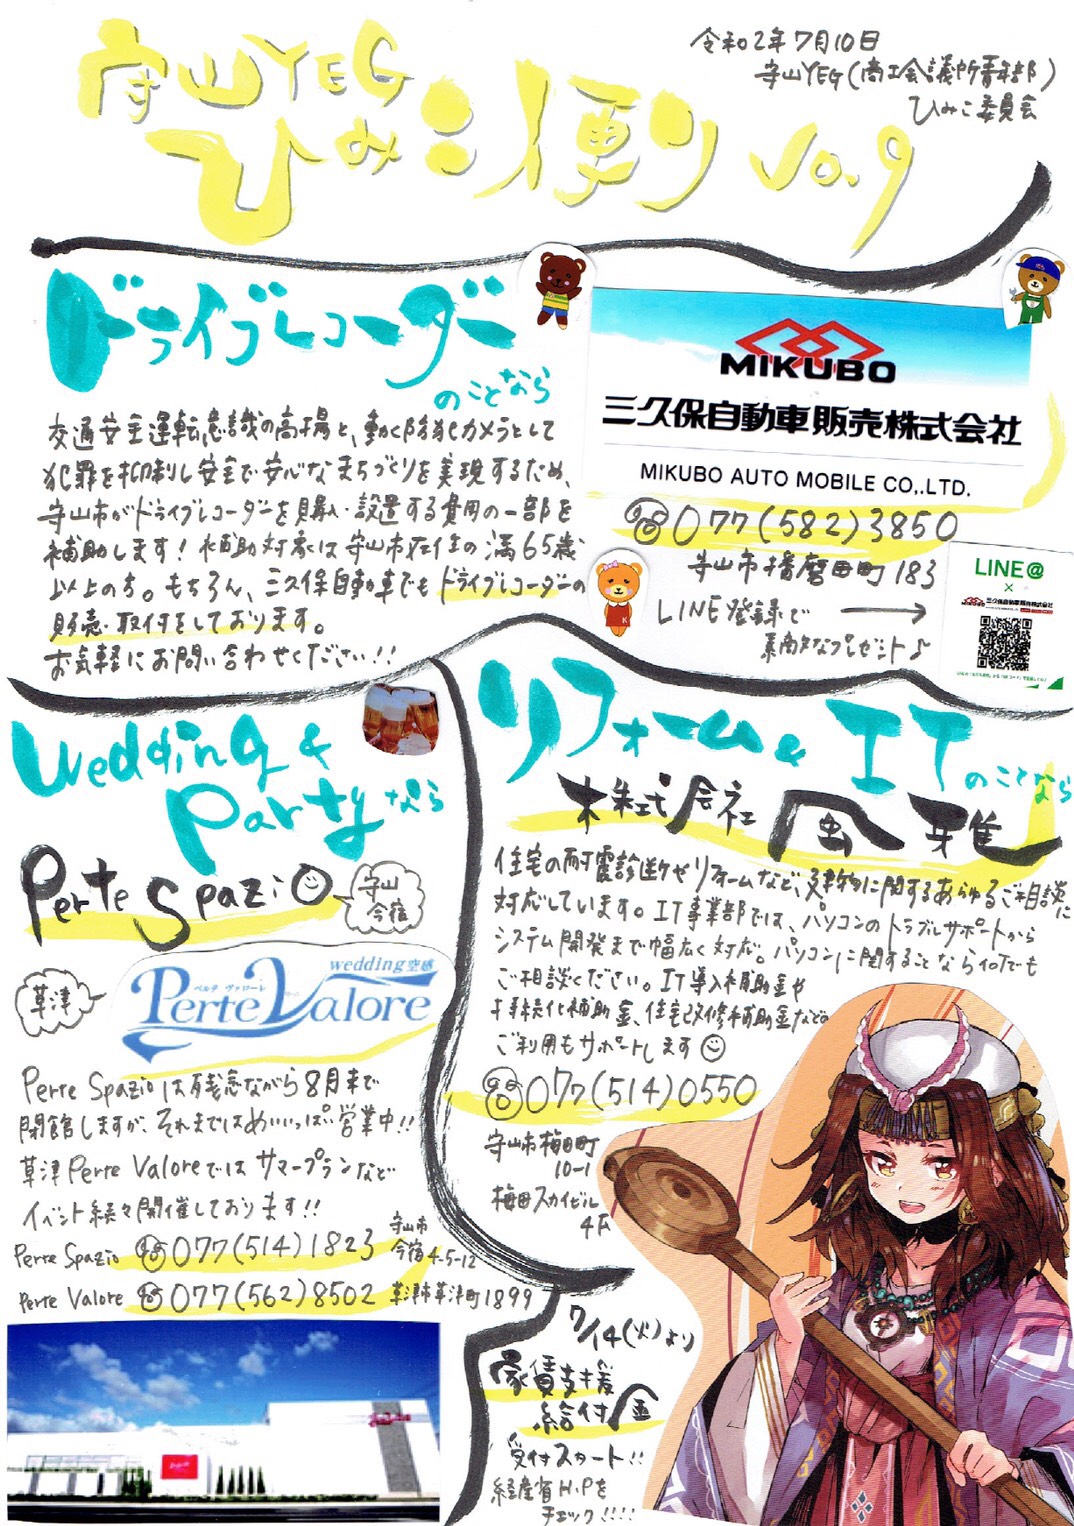 令和2年7月10日
守山YEG(商工会議所青年部)
ひみこ委員会
守山YEG
ひみこ便り Vo.9
ドライブレコーダー
のことなら
交通安全運転意識の高揚と、動く防犯カメラとして
犯罪を抑制し安全で安心なまちづくりを実現するため、
守山市がドライブレコーダーを購入・設置する費用の一部を
補助します!補助対象は守山市在住の満65歳
以上の方。もちろん、三久保自動車でもドライブレコーダーの
販売・取付をしております。
お気軽にお問い合わせください!!
MIKUBO
三久保自動車販売株式会社
MIKUBO AUTO MOBILE CO,.LTD.
077(582)3850
守山市播磨田町183
LINE登録で
素敵なプレゼント♪
LINE@
×
MIKUBO 三久保自動車販売株式会社
Wedding &
Partyなら
Perte Spazio
守山
今宿
草津
wedding空感
ペルテ ヴァローレ
Perte Valore
Perte Spazioは残念ながら8月末で
閉館しますが、それまではめいいっぱい営業中!!
草津Perte Valoreではサマープランなど
イベント続々開催しております!!
Perte Spazio 077(514)1823 守山市
今宿4-5-12
Perte Valore 077(562)8502 草津市草津町1899
リフォーム& IT
のことなら
株式会社 風雅
住宅の耐震診断やリフォームなど、建物に関するあらゆるご相談に
対応しています。IT事業部では、パソコンのトラブルサポートから
システム開発まで幅広く対応。パソコンに関することなら何でも
ご相談ください。IT導入補助金や
持続化補助金、住宅改修補助金などの
ご利用もサポートします
077(514)0550
守山市梅田町
10-1
梅田スカイビル
4F
7/14(火)より
家賃支援
給付金
受付スタート!!
経産省H.Pを
チェック!!!!